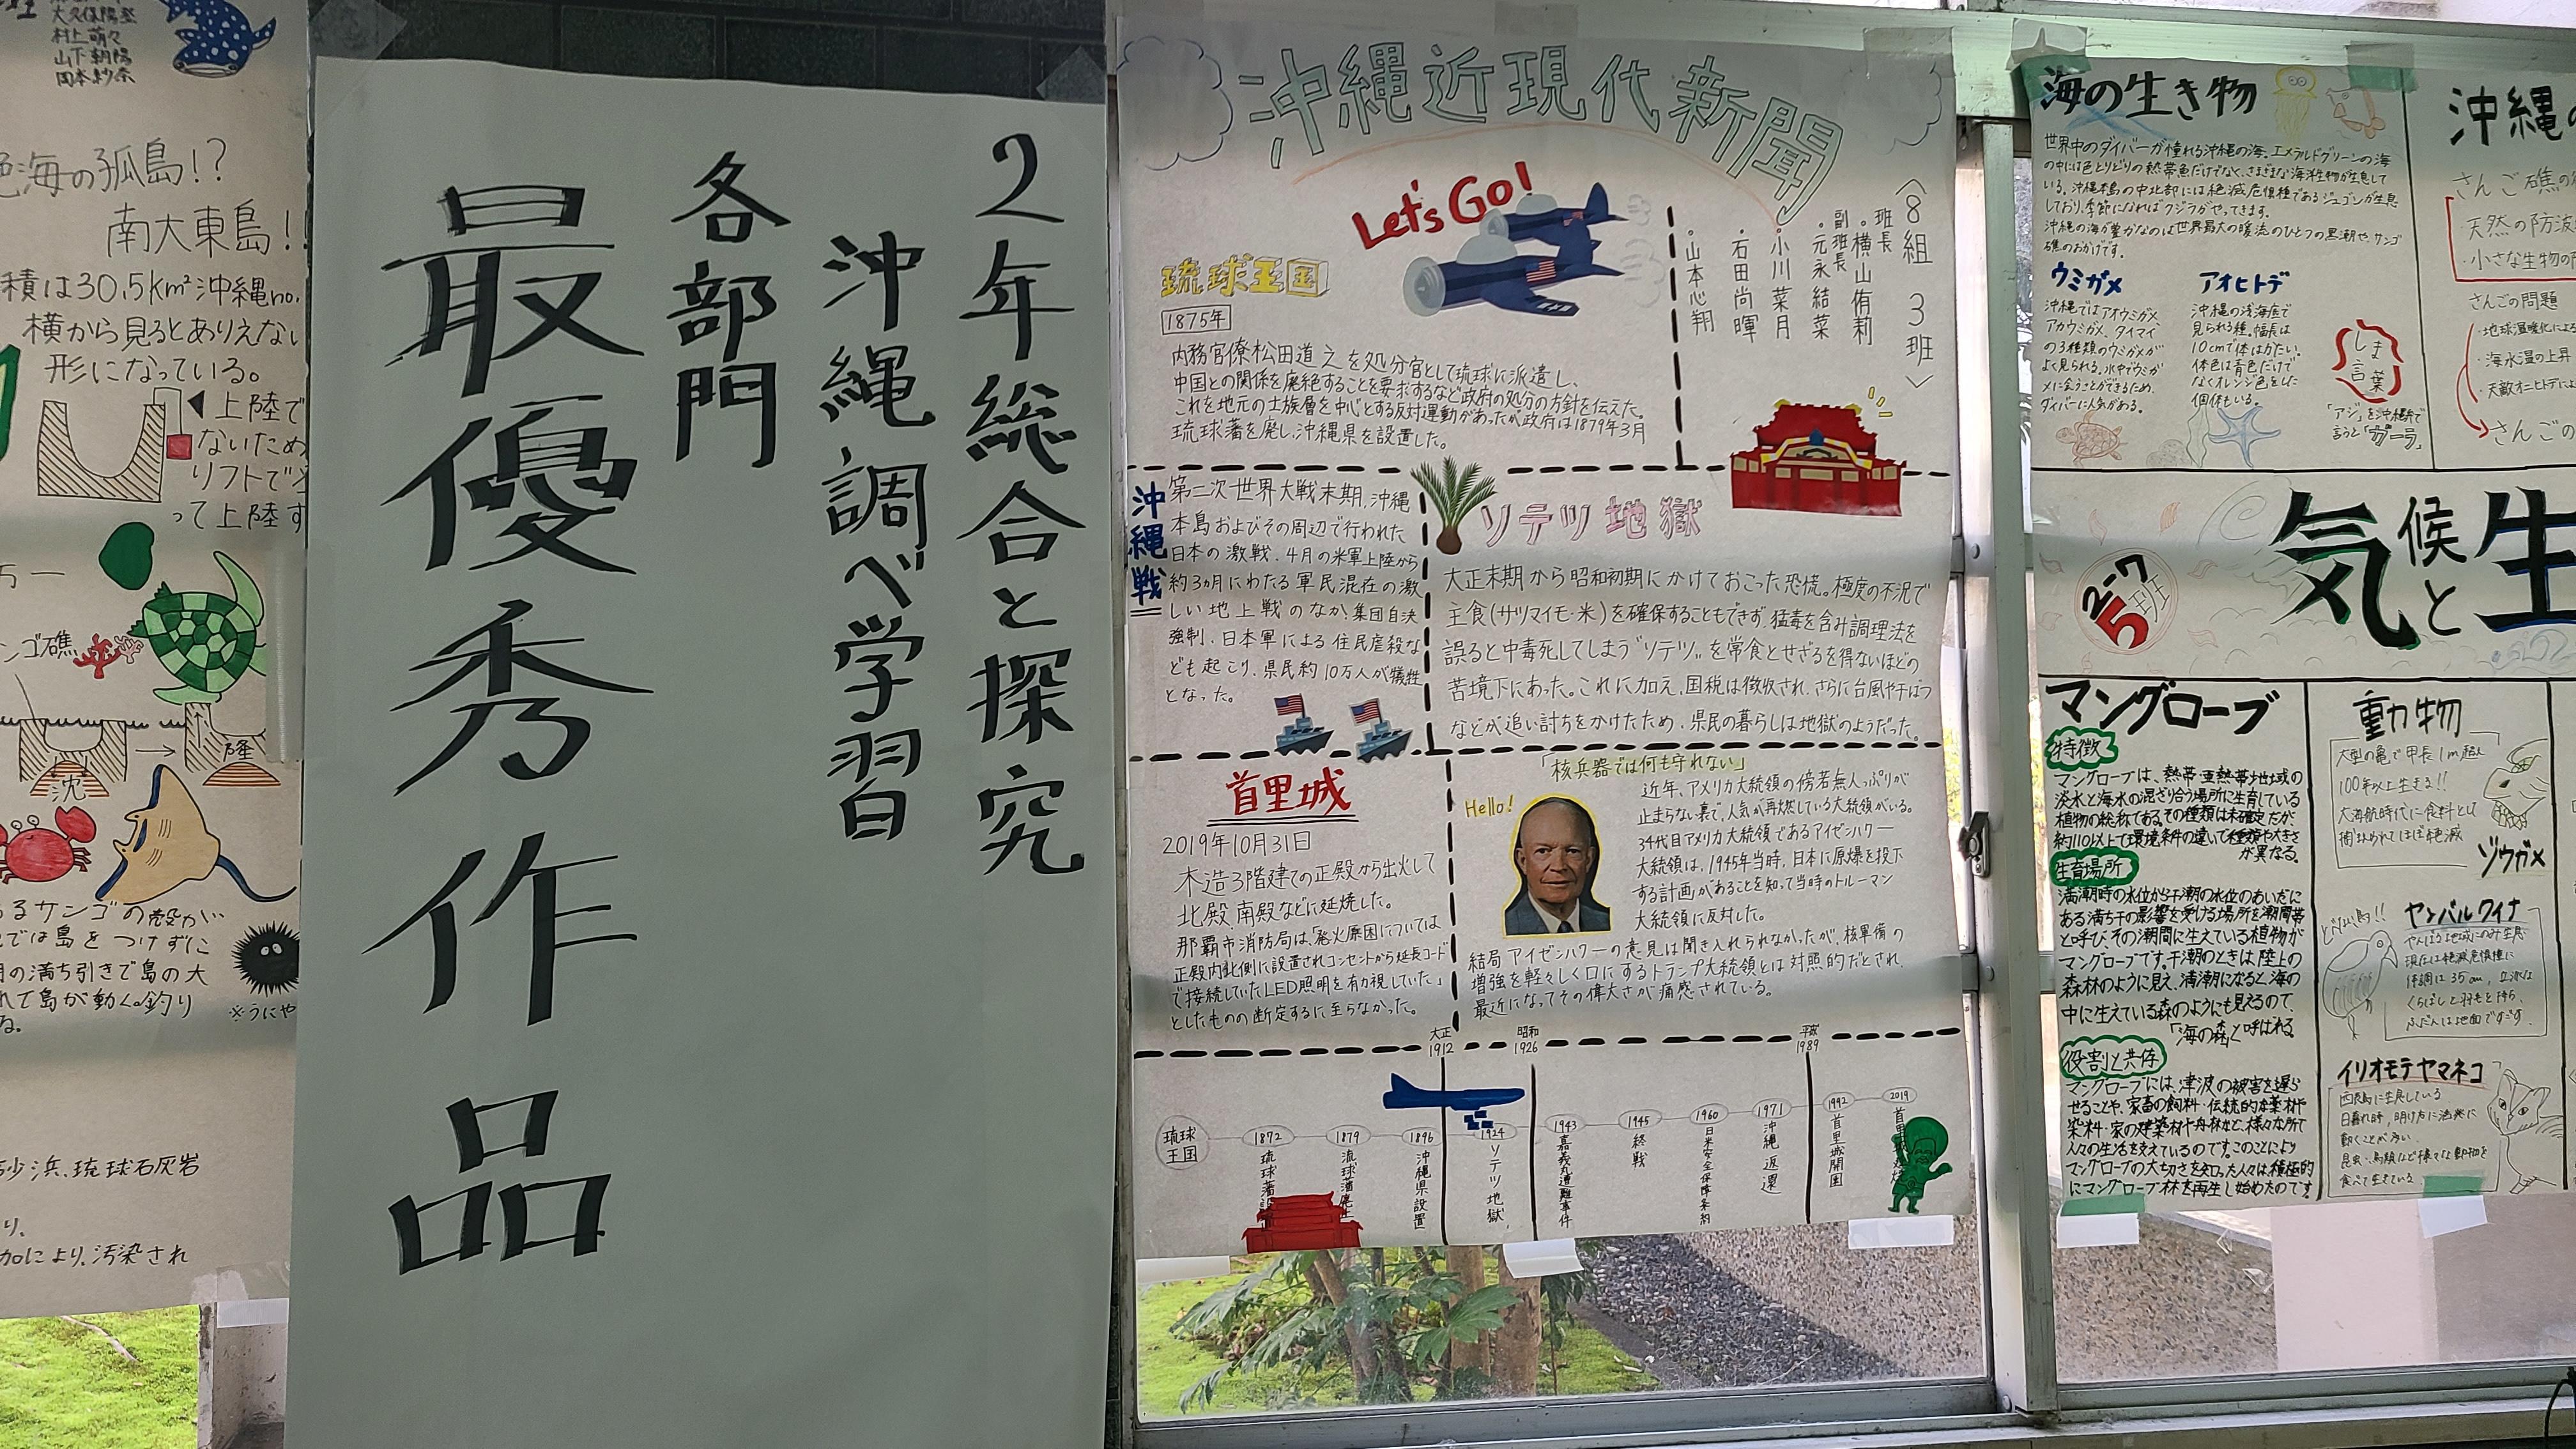 大久保陽葵
村上萌々
山下朝陽
岡本紗奈
海の孤島!?
南大東島!!
積は30.5km²沖縄no.
横から見るとありえない
形になっている。
◀上陸で
ないため
リフトで
って上陸す
ンゴ礁
沈
隆
るサンゴの殻が
では島をつけずに
の満ち引きで島の大
れて島が動く。釣り
※うにや
砂浜、琉球石灰岩
り。
加により、汚染され
2年総合と探究
沖縄調べ学習
各部門
最優秀作品
沖縄近現代新聞
Let's Go!
〈8組 3班〉
班長
・横山侑莉
副班長
・元永結菜
・小川菜月
・石田尚暉
・山本心翔
琉球王国
1875年
内務官僚松田道之を処分官として琉球に派遣し、
中国との関係を廃絶することを要求するなど政府の処分の方針を伝えた。
これを地元の士族層を中心とする反対運動があったが政府は1879年3月
琉球藩を廃し、沖縄県を設置した。
沖縄戦
第二次世界大戦末期、沖縄
本島およびその周辺で行われた
日本の激戦。4月の米軍上陸から
約3ヵ月にわたる軍民混在の激
しい地上戦のなか、集団自決
強制、日本軍による住民虐殺な
ども起こり、県民約10万人が犠牲
となった。
ソテツ地獄
大正末期から昭和初期にかけておこった恐慌。極度の不況で
主食(サツマイモ・米)を確保することもできず、猛毒を含み調理法を
誤ると中毒死してしまう"ソテツ"を常食とせざるを得ないほどの
苦境下にあった。これに加え、国税は徴収され、さらに台風や干ばつ
などが追い討ちをかけたため、県民の暮らしは地獄のようだった。
首里城
2019年10月31日
木造3階建ての正殿から出火して
北殿、南殿などに延焼した。
那覇市消防局は、「発火原因については
正殿内北側に設置されコンセントから延長コード
で接続していたLED照明を有力視していた」
としたものの断定するに至らなかった。
「核兵器では何も守れない」
Hello!
近年、アメリカ大統領の傍若無人っぷりが
止まらない裏で、人気が再燃している大統領がいる。
34代目アメリカ大統領であるアイゼンハワー
大統領は、1945年当時、日本に原爆を投下
する計画があることを知って当時のトルーマン
大統領に反対した。
結局アイゼンハワーの意見は聞き入れられなかったが、核軍備の
増強を軽々しく口にするトランプ大統領とは対照的だとされ、
最近になってその偉大さが痛感されている。
大正
1912
昭和
1926
平成
1989
琉球王国
1872
琉球藩設
1879
琉球藩廃止
1896
沖縄県設置
1924
ソテツ地獄
1943
嘉義丸遭難事件
1945
終戦
1960
日米安全保障条約
1971
沖縄返還
1992
首里城開園
2019
首里城
海の生き物
世界中のダイバーが憧れる沖縄の海。エメラルドグリーンの海
の中には色とりどりの熱帯魚だけでなく、さまざまな海洋生物が生息して
いる。沖縄本島の中北部には絶滅危惧種であるジュゴンが生息
しており、季節になればクジラがやってきます。
沖縄の海が豊かなのは世界最大の暖流のひとつの黒潮や、サンゴ
礁のおかげです。
ウミガメ
沖縄ではアオウミガメ
アカウミガメ、タイマイ
の3種類のウミガメが
よく見られる。水中でウミガ
メに会うことができるため、
ダイバーに人気がある。
アオヒトデ
沖縄の浅海底で
見られる種。幅長は
10cmで体はかたい。
体色は青色だけで
なくオレンジ色をした
個体もいる。
しま言葉
「アジ」を沖縄弁で
言うと「ガーラ」
沖縄の
さんご礁の
天然の防波
・小さな生物の
さんごの問題
・地球温暖化による
・海水温の上昇
・天敵オニヒトデによ
さんごの
2-7
5班
気候と生
マングローブ
特徴
マングローブは、熱帯・亜熱帯地域の
淡水と海水の混ざり合う場所に生育している
植物の総称である。その種類は未確定だが、
約110以上で環境条件の違いで種類や大きさ
が異なる。
生育場所
満潮時の水位から干潮の水位のあいだに
ある満ち干の影響を受ける場所を潮間帯
と呼び、その潮間に生えている植物が
マングローブです。干潮のときは陸上の
森林のように見え、満潮になると海の
中に生えている森のようにも見えるので、
「海の森」と呼ばれる。
役割と共存
マングローブには、津波の被害を遅ら
せることや、家畜の飼料・伝統的な薬材や
染料・家の建築材や舟材など、様々な所で
人々の生活を支えているのです。このことにより
マングローブの大切さを知った人々は、積極的
にマングローブ林を再生し始めたのです。
動物
大型の亀で甲長1m超え
100年以上生きる!!
大海航時代に食料として
ほぼ絶滅
ゾウガメ
ヤンバルクイナ
やんばる地域にのみ生息
現在は絶滅危惧種に
体調は35cm、
くちばしと羽毛を持ち、
ふだんは地面ですごす。
イリオモテヤマネコ
西表島に生息している
日暮れ時、明け方に活発に
動くことが多い。
昆虫、鳥類など様々な動物を
食べて生きている